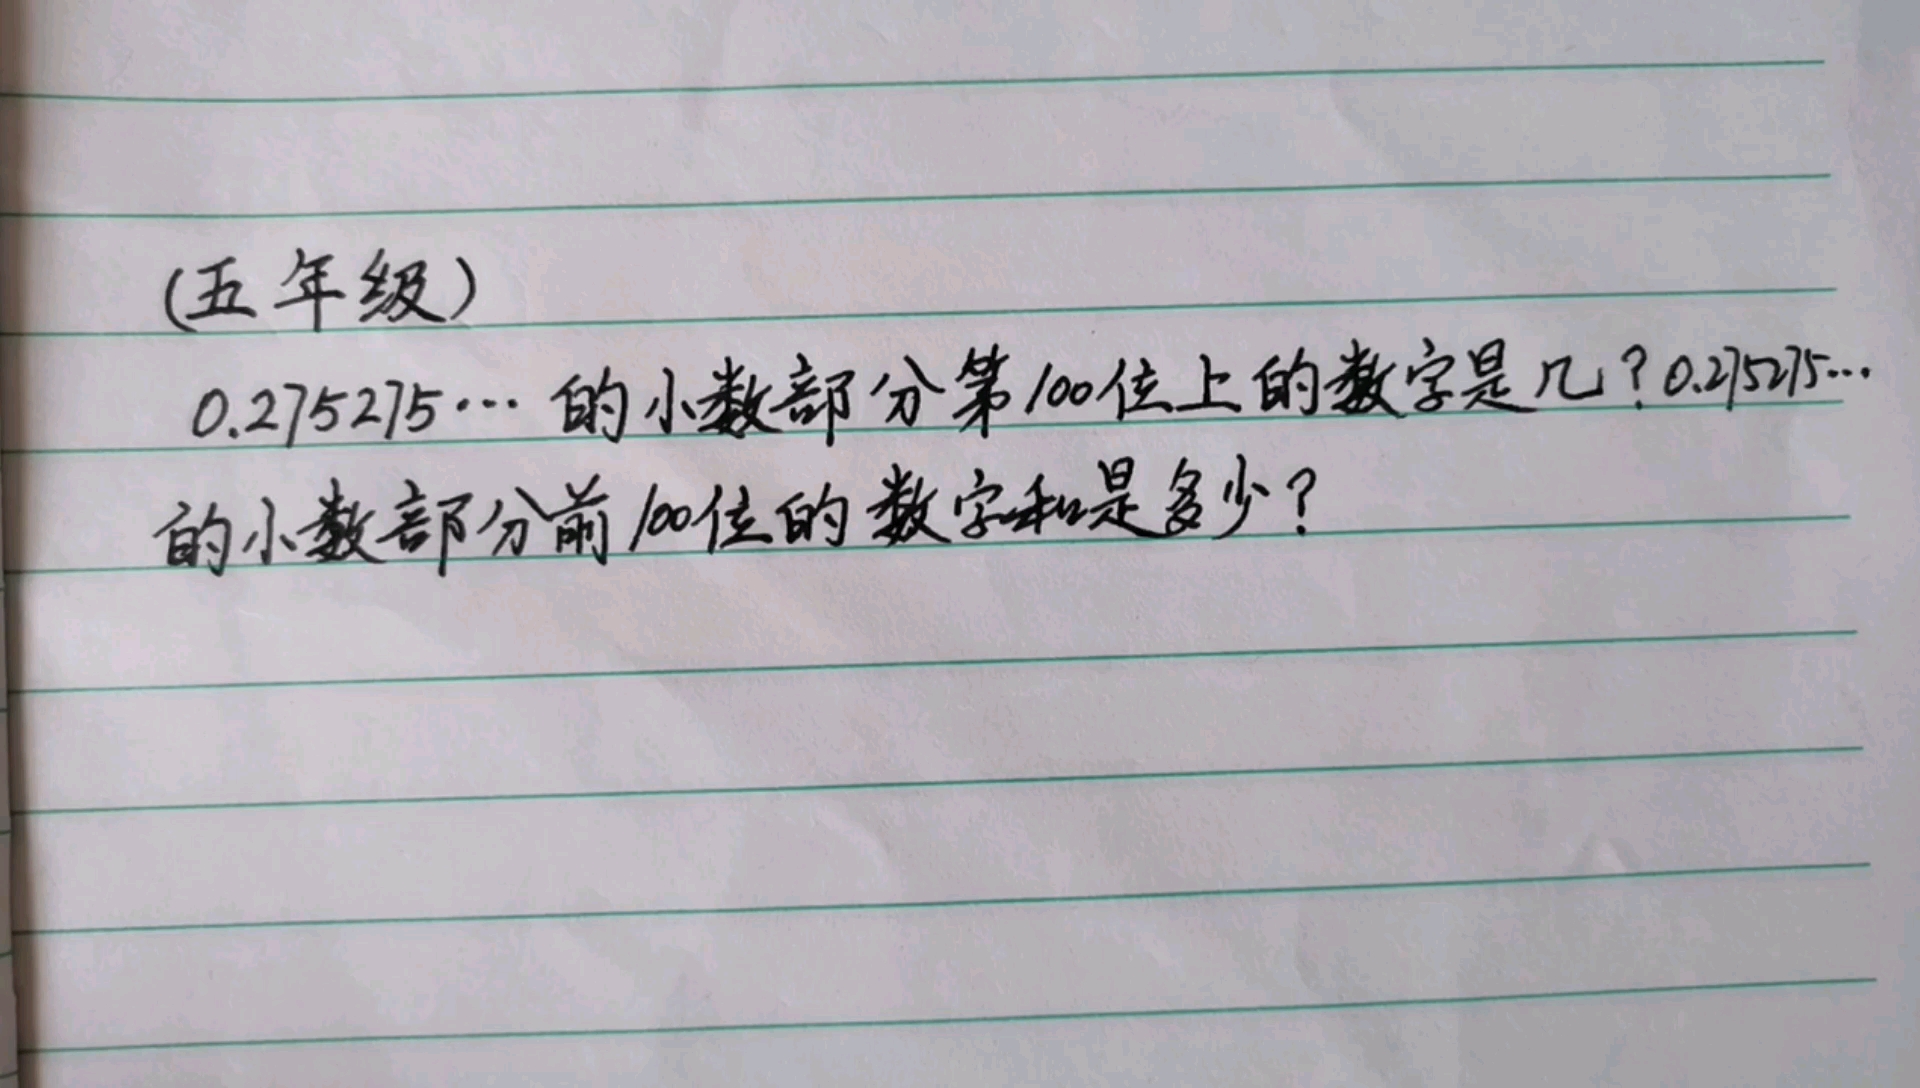 (五年级)
0.275275… 的小数部分第100位上的数字是几?0.275275…
的小数部分前100位的数字和是多少?